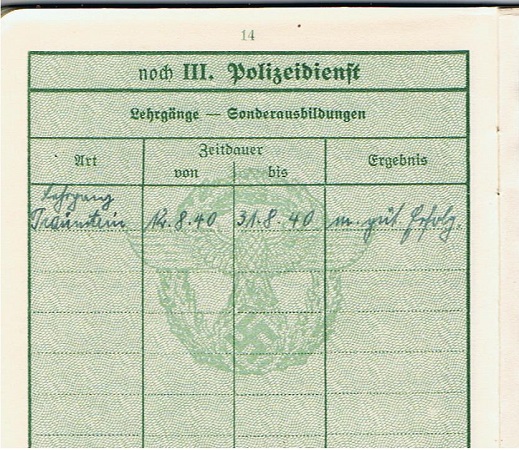 14
noch III. Polizeidienst
Lehrgänge — Sonderausbildungen
Art
Zeitdauer
von
bis
Ergebnis
Lehrgang
Traunstein
12.8.40
31.8.40
m. gut. Erfolg.